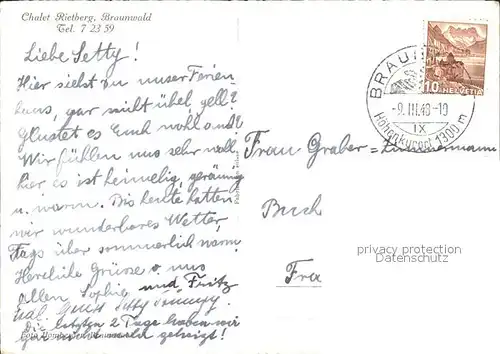 Chalet Rietberg, Braunwald
Tel. 7 23 59
Liebe Setty!
Hier siehst Du unser Ferien-
haus, gar nicht übel, gell?
Glustet es Euch wohl auch?
Wir fühlen uns sehr wohl
hier, es ist heimelig, geräumig
u. warm. Bis heute hatten
wir wunderbares Wetter,
Tags über sommerlich warm.
Herzliche Grüsse v. uns
allen, Sophie und Fritz
die letzten 2 Tage haben wir
geheizt!
BRAUN
10 HELVETIA
-9. III. 48-10
IX
Höhenkurort 1300 m
Frau Graber = Zimmermann
Buch
Fra
privacy protection
Datenschutz